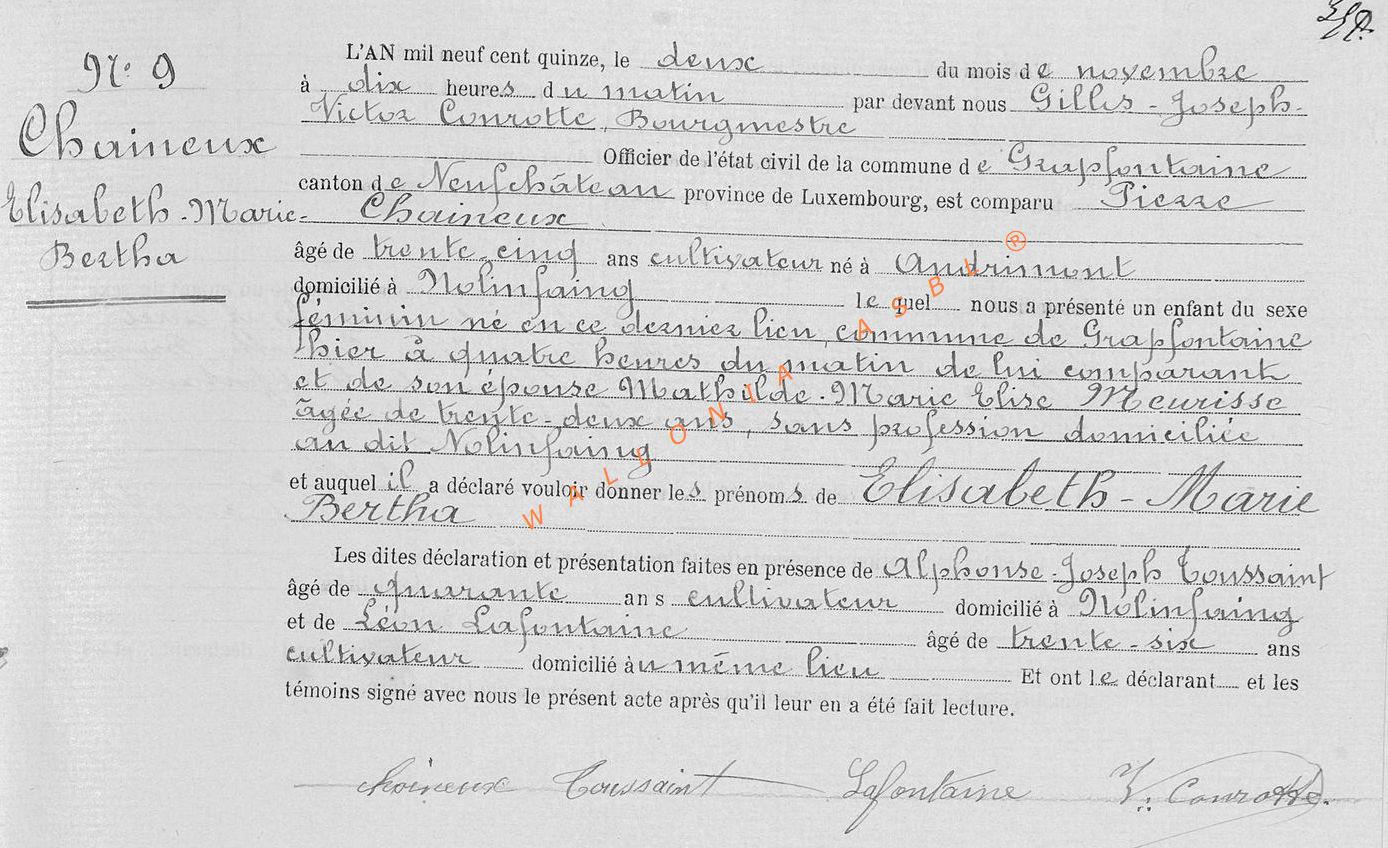 N° 9
Chaineux
Elisabeth-Marie-
Bertha
L'AN mil neuf cent quinze, le deux du mois de novembre
à dix heures du matin par devant nous Gilles-Joseph-
Victor Conrotte, Bourgmestre
Officier de l'état civil de la commune de Grapfontaine
canton de Neufchâteau province de Luxembourg, est comparu Pierre
Chaineux
âgé de trente-cinq ans cultivateur né à Andrimont
domicilié à Nolinfaing lequel nous a présenté un enfant du sexe
féminin né en ce dernier lieu, commune de Grapfontaine
hier à quatre heures du matin de lui comparant
et de son épouse Mathilde-Marie Elise Meurisse
âgée de trente-deux ans, sans profession domiciliée
au dit Nolinfaing
et auquel il a déclaré vouloir donner les prénoms de Elisabeth-Marie
Bertha
Les dites déclaration et présentation faites en présence de Alphonse-Joseph Toussaint
âgé de quarante ans cultivateur domicilié à Nolinfaing
et de Léon Lafontaine âgé de trente-six ans
cultivateur domicilié au même lieu Et ont le déclarant et les
témoins signé avec nous le présent acte après qu'il leur en a été fait lecture.
Chaineux Toussaint Lafontaine V. Conrotte.
WALLONIA ASBL ®